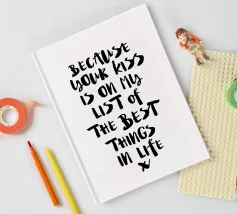 BECAUSE
YOUR KISS
IS ON MY
LIST OF
THE BEST
THINGS
IN LIFE
x